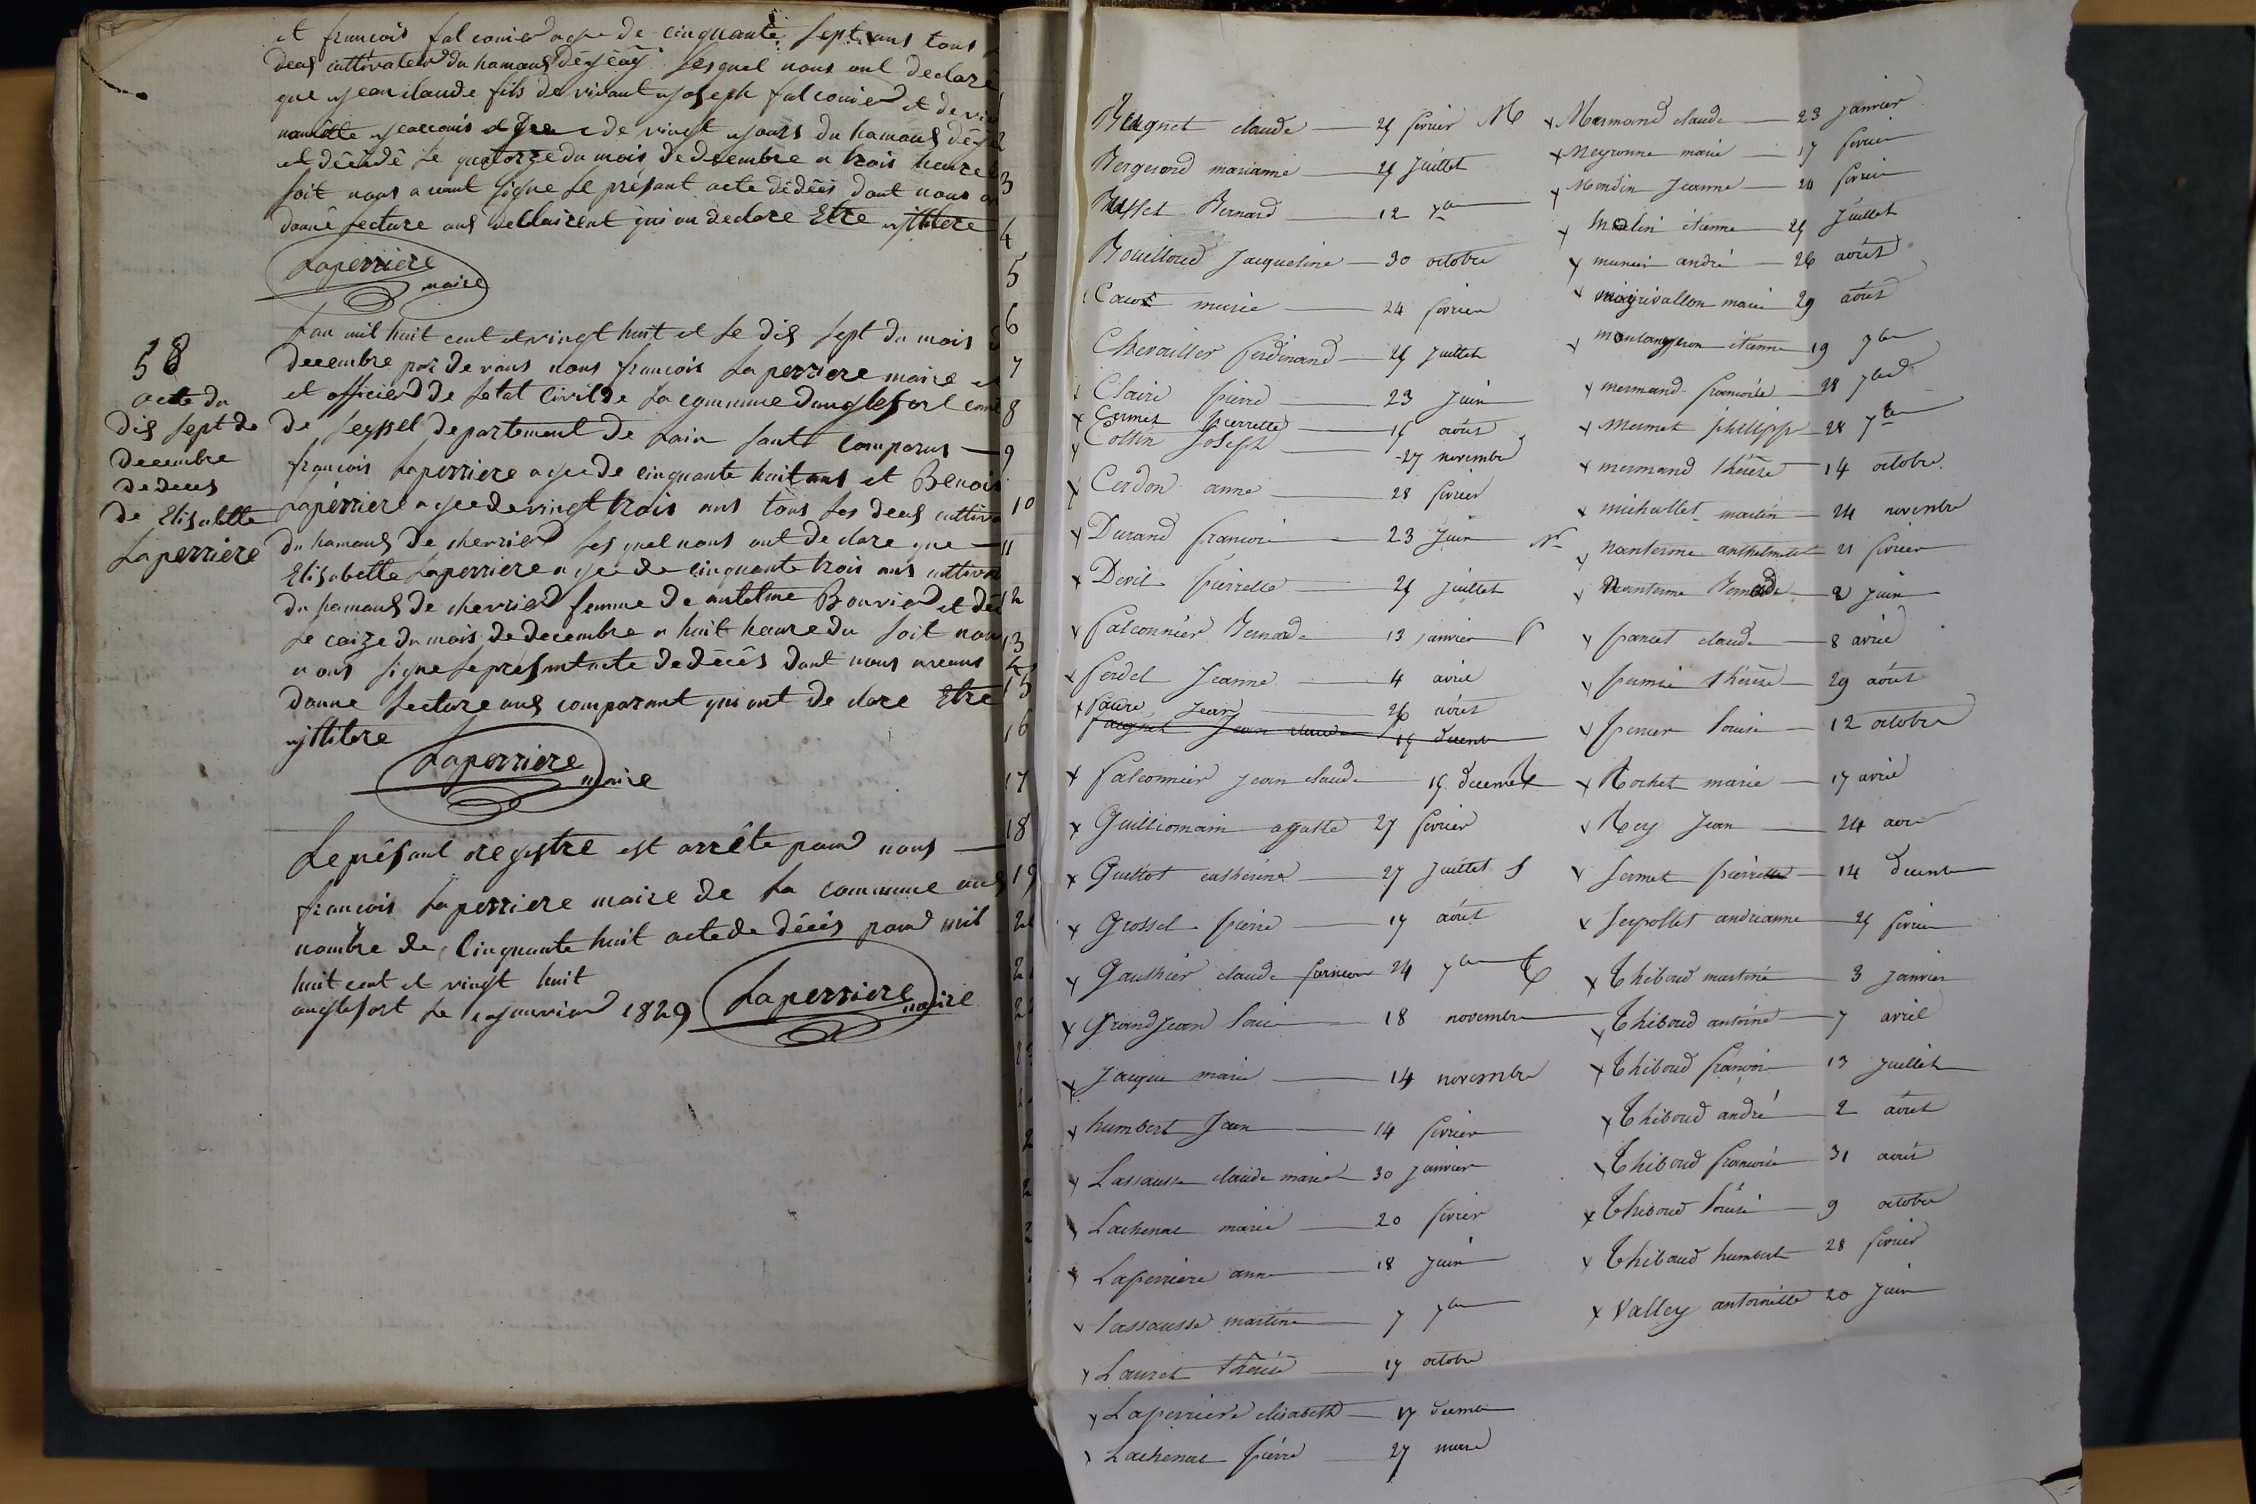 et francois falconier agee de cinquante sept ans tous
deus cultivateur du hamaus déjéaij. lesquel nous ont declaré
que jean claude fils de vivant joseph falconier et de
agee de vingt jours du hamaus
et décédé le quatorze du mois de desembre a trois heure
soit nous avont signe le présant acte dédéçés dont nous
donné lecture aus qui on declare Etre illitere
Laperriere
maire
58
acte du
dis sept de
decembre
de deces
de Elisabette
Laperriere
Lan mil huit cent et vingt huit et le dis sept du mois
decembre par devans nous francois Laperriere maire et
et officier de letat civil de la commune danglefort
de seyssel departement de Lain sont comparus
francois Laperriere agee de cinquante huit ans et Benoit
Laperriere agee de vingt trois ans tous les deus
du hamaus de chevrier lesquel nous ont declare que
Elisabette Laperriere agee de cinquante trois ans
du hamaus de chevrier femme de antelme Bouvier et
le caize du mois de decembre a huit heure du soit nous
avons signe le présant acte dedécés dont nous avons
donne lecture aus comparant qui ont declare Etre
illitere
Laperriere
maire
Le présant regystre est arrête pour nous
francois Laperriere maire de la commune aus
nombre de cinquante huit acte de décés pour mil
huit cent et vingt huit
anglefort le 1 janvier 1829
Laperriere
maire
3
4
5
6
7
8
9
10
11
12
13
15
16
17
18
19
claude 29 fevrier
Bergerond marianne 29 juillet
Bernard 12 7bre
Bouilloud Jacqueline 30 octobre
marie 24 fevrier
Chevallier ferdinand 29 juillet
Claire pierre 23 juin
Cermet pierrette 15 août
Collin Joseph 27 novembre
Cerdon anne 28 fevrier
Durand francois 23 juin
Devil pierrette 29 juillet
falconnier Bernarde 13 janvier
ferdel Jeanne 4 avril
faure Jean 26 août
Jean claude 15 decembre
falconnier jean claude 15 decembre
Guilliomain agathe 27 fevrier
Guillot catherine 27 juillet
Grossel pierre 17 août
Gauthier claude 24 7bre
Grandjean louis 18 novembre
Jacque marie 14 novembre
humbert Jean 14 fevrier
Lassausse claude marie 30 janvier
Lachenal marie 20 fevrier
Laperriere anne 18 juin
Lassausse martine 7 7bre
Lauret thérèse 17 octobre
Laperriere elisabeth 17 decembre
Lachenal pierre 27 mars
M
Mermand claude 23 janvier
Meyronne marie 17 fevrier
Mondin Jeanne 24 fevrier
Molin étienne 29 Juillet
andré 26 août
marie 29 août
étienne 19 7bre
mermand francoise 28 7bre
Mermet philippe 28 7bre
mermand thérèse 14 octobre
michallet martin 24 novembre
N
Nanterme anthelmette 21 fevrier
Nanterme Bernarde 2 juin
P
pancet claude 8 avril
thérèse 29 août
louise 12 octobre
R
Rochet marie 17 avril
Rey Jean 24 avril
S
Sermet pierrette 14 decembre
Seypollet andrianne 29 fevrier
T
Thiboud martine 3 janvier
Thiboud antoine 7 avril
Thiboud francois 13 juillet
Thiboud andré 2 août
Thiboud francoise 31 août
Thiboud louise 9 octobre
Thibaud humbert 28 fevrier
Valley antoinette 20 juin